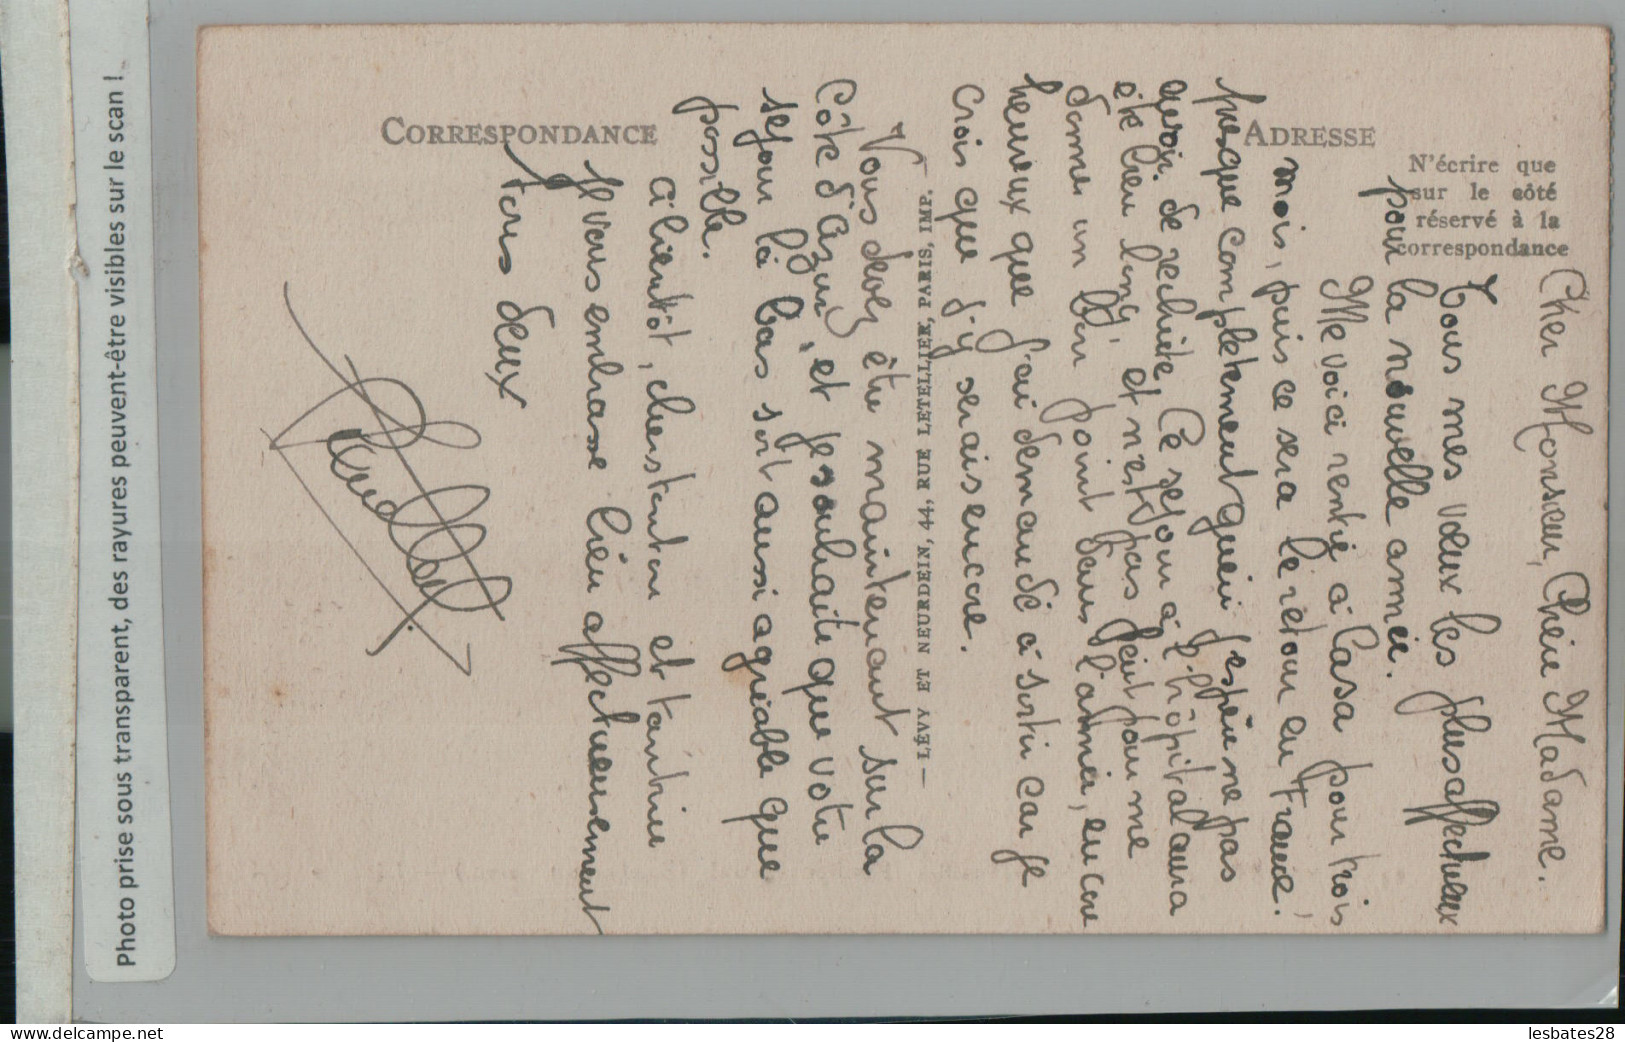 Photo prise sous transparent, des rayures peuvent-être visibles sur le scan !
CORRESPONDANCE
ADRESSE
N'écrire que
sur le côté
réservé à la
correspondance
— LÉVY ET NEURDEIN, 44, RUE LETELLIER, PARIS, IMP. —
Cher Monsieur, Chère Madame.
Tous mes vœux les plus affectueux
pour la nouvelle année.
Me voici rentré à Casa pour trois
mois, puis ce sera le retour en France.
presque complètement guéri j'espère ne pas
avoir de rechute. Ce séjour à l'hôpital aura
été bien long, et n'est pas fait pour me
donner un bon point dans l'armée, encore
heureux que j'ai demandé à sortir car je
crois que j'y serais encore.
Vous devez être maintenant sur la
Côte d'Azur, et je souhaite que votre
séjour là bas soit aussi agréable que
possible.
à bientôt, cher tonton et tantine
je vous embrasse bien affectueusement
tous deux
lesbates28